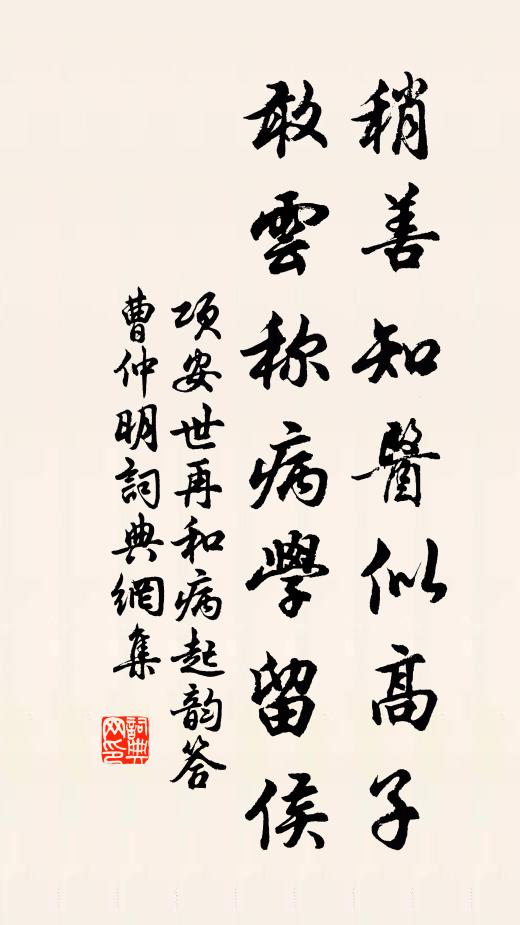 稍善知醫似高子
敢雲称病學留侯
项安世再和病起韵答
曹仲明詞典網集
詞典網印